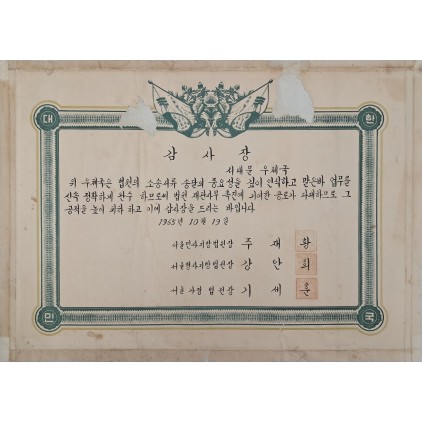 대 한
감 사 장
서대문 우체국
위 우체국은 법원의 소송서류 송달의 중요성을 깊이 인식하고 맡은바 업무를
신속 정확하게 완수 하므로써 법원 재판사무 촉진에 기여한 공로가 지대하므로 그
공적을 높이 치하 하고 이에 감사장을 드리는 바입니다.
1965년 10월 19일
서울민사지방법원장 주 재 황
서울형사지방법원장 강 안 희
서울 가정 법원장 기 세 훈
민 국